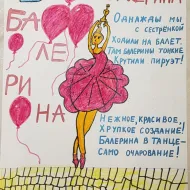 БА
ЛЕ
РИ
НА
Однажды мы
с сестрёнкой
Ходили на балет.
Там балерины тонкие
Крутили пируэт!
Нежное, красивое,
Хрупкое создание!
Балерина в танце-
само очарование!